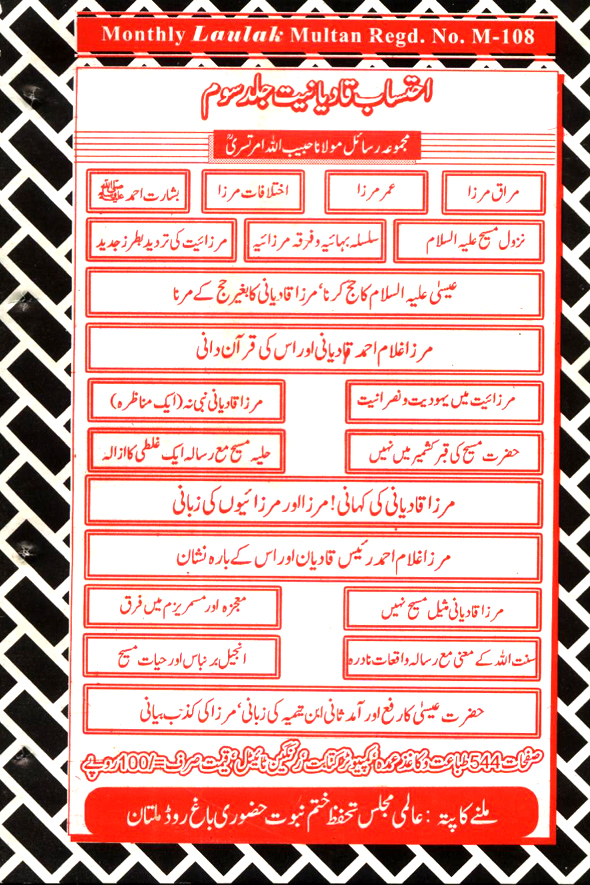 Monthly Laulak Multan Regd. No. M-108
احتساب قادیانیت جلد سوم
مجموعہ رسائل مولانا حبیب اللہ امرتسریؒ
مراق مرزا
عمر مرزا
اختلافات مرزا
بشارت احمد ﷺ
نزول مسیح علیہ السلام
سلسلہ بہائیہ و فرقہ مرزائیہ
مرزائیت کی تردید بطرز جدید
عیسیٰ علیہ السلام کا حج کرنا، مرزا قادیانی کا بغیر حج کے مرنا
مرزا غلام احمد قادیانی اور اس کی قرآن دانی
مرزائیت میں یہودیت و نصرانیت
مرزا قادیانی نبی نہ (ایک مناظرہ)
حضرت مسیح کی قبر کشمیر میں نہیں
حلیہ مسیح مع رسالہ ایک غلطی کا ازالہ
مرزا قادیانی کی کہانی! مرزا اور مرزائیوں کی زبانی
مرزا غلام احمد رئیس قادیان اور اس کے بارہ نشان
مرزا قادیانی مثیل مسیح نہیں
معجزہ اور مسمریزم میں فرق
سنت اللہ کے معنی مع رسالہ واقعات نادرہ
انجیل برنباس اور حیات مسیح
حضرت عیسیٰ کا رفع اور آمد ثانی ابن تیمیہ کی زبانی، مرزا کی کذب بیانی
صفحات 544 طباعت و کاغذ عمدہ کمپیوٹر کتابت رنگین ٹائیٹل قیمت صرف =/100 روپے
ملنے کا پتہ : عالمی مجلس تحفظ ختم نبوت حضوری باغ روڈ ملتان